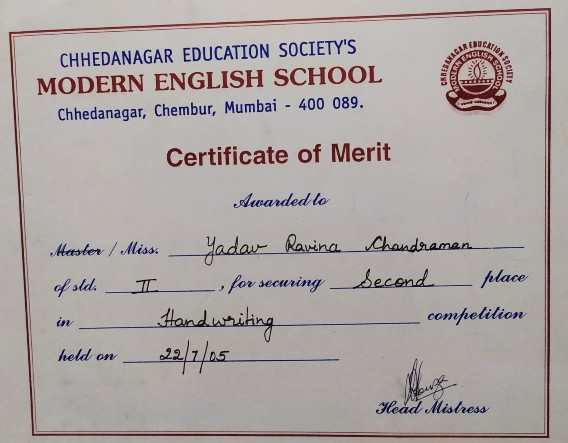 CHHEDANAGAR EDUCATION SOCIETY'S
MODERN ENGLISH SCHOOL
Chhedanagar, Chembur, Mumbai - 400 089.
CHHEDANAGAR EDUCATION SOCIETY
MODERN ENGLISH SCHOOL
Certificate of Merit
Awarded to
Master / Miss. Yadav Ravina Chandraman
of std. II, for securing Second place
in Handwriting competition
held on 22/7/05
Head Mistress